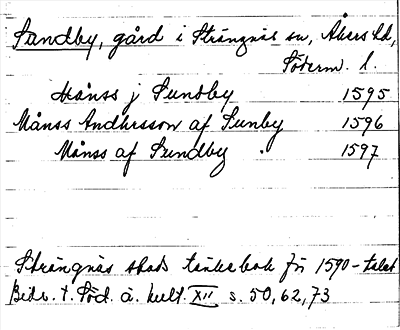 Sundby, gård i Strängnäs sn, Åkers hd,
Söderm. l.
Månss j Sundby 1595
Månss Andhersson af Sunby 1596
Månss af Sundby . 1597
Strängnäs stads tänkebok för 1590-talet
Bidr. t. Söd. ä. kult. XII s. 50, 62, 73